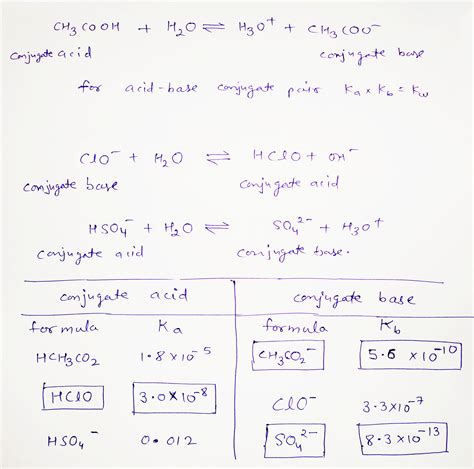 CH₃COOH + H₂O ⇌ H₃O⁺ + CH₃COO⁻
conjugate acid conjugate base
for acid-base conjugate pair Ka × Kb = Kw
ClO⁻ + H₂O ⇌ HClO + OH⁻
conjugate base conjugate acid
HSO₄⁻ + H₂O ⇌ SO₄²⁻ + H₃O⁺
conjugate acid conjugate base.
conjugate acid conjugate base
formula Ka formula Kb
HCH₃CO₂ 1.8 × 10⁻⁵ CH₃CO₂⁻ 5.6 × 10⁻¹⁰
HClO 3.0 × 10⁻⁸ ClO⁻ 3.3 × 10⁻⁷
HSO₄⁻ 0.012 SO₄²⁻ 8.3 × 10⁻¹³